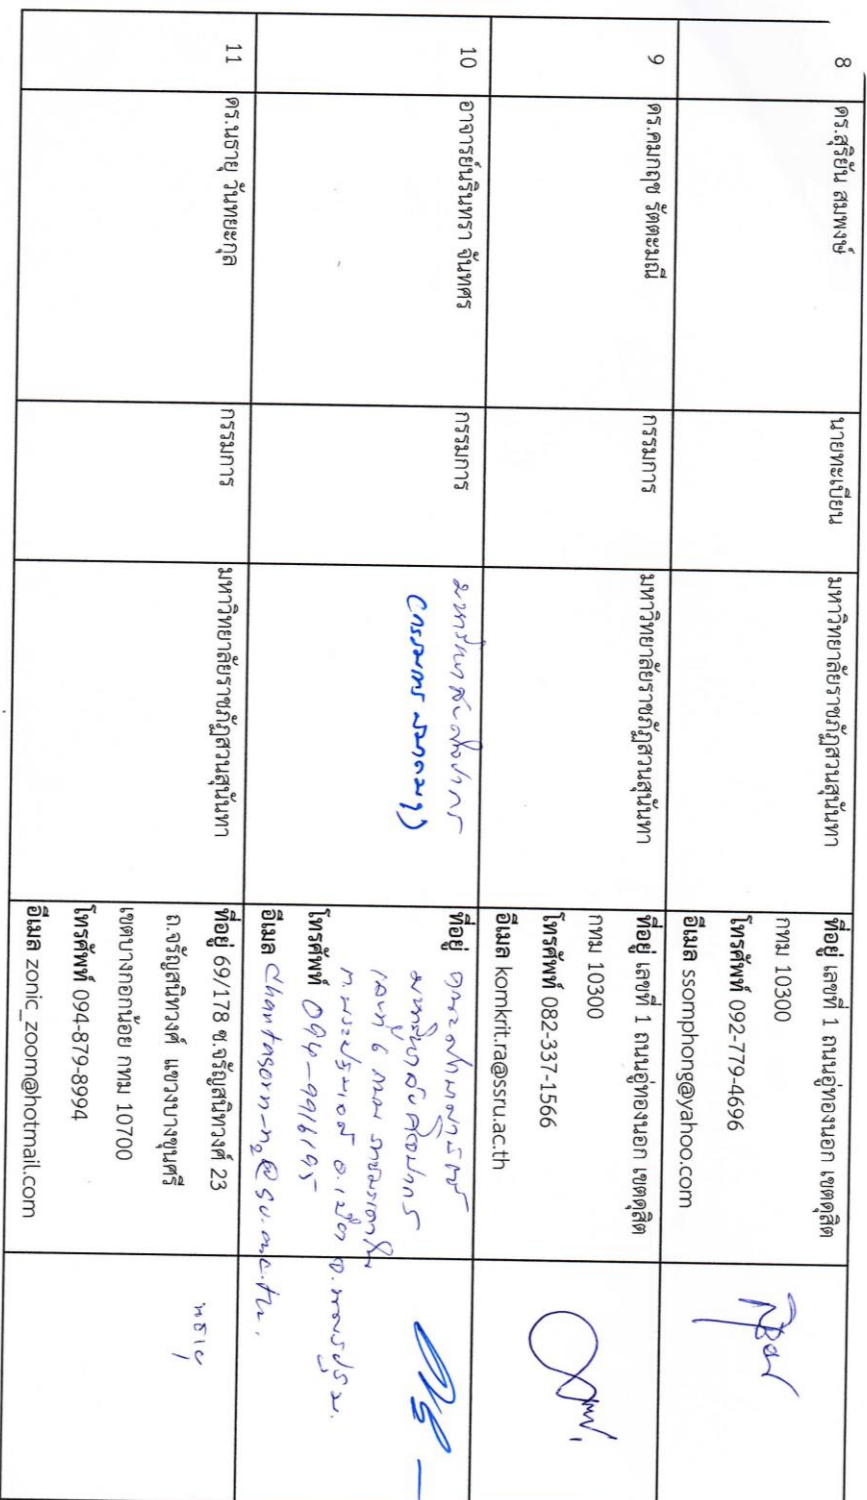 8
ดร.สุริยัน สมพงษ์
นายทะเบียน
มหาวิทยาลัยราชภัฏสวนสุนันทา
ที่อยู่ เลขที่ 1 ถนนอู่ทองนอก เขตดุสิต
กทม 10300
โทรศัพท์ 092-779-4696
อีเมล ssomphong@yahoo.com
9
ดร.คมกฤช รัตตะมณี
กรรมการ
มหาวิทยาลัยราชภัฏสวนสุนันทา
ที่อยู่ เลขที่ 1 ถนนอู่ทองนอก เขตดุสิต
กทม 10300
โทรศัพท์ 082-337-1566
อีเมล komkrit.ra@ssru.ac.th
10
อาจารย์นรินทรา จันทศร
กรรมการ
มหาวิทยาลัยศิลปากร
(กรรมการ สมาคมฯ)
ที่อยู่ คณะสถาปัตย์
มหาวิทยาลัยศิลปากร
เลขที่ 6 ถนน ราชมรรคาใน
ต.พระปฐมเจดีย์ อ.เมือง จ.นครปฐม.
โทรศัพท์
อีเมล chantasorn_n2@su.ac.th.
11
ดร.นธายุ วันทยะกุล
กรรมการ
มหาวิทยาลัยราชภัฏสวนสุนันทา
ที่อยู่ 69/178 ซ.จรัญสนิทวงศ์ 23
ถ.จรัญสนิทวงศ์ แขวงบางขุนศรี
เขตบางกอกน้อย กทม 10700
โทรศัพท์ 094-879-8994
อีเมล zonic_zoom@hotmail.com
นธายุ